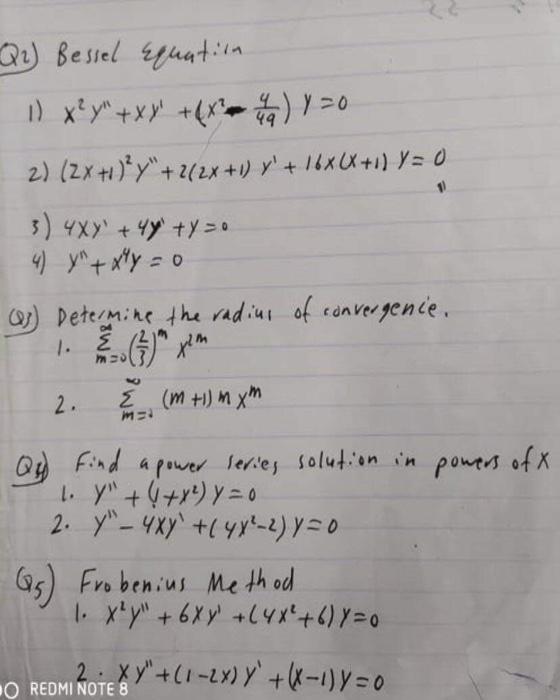 Q2) Bessel Equation
1) x²y" + xy' + (x² - 4/49) y = 0
2) (2x+1)²y" + 2(2x+1) y' + 16x(x+1) y = 0
3) 4xy' + 4y' + y = 0
4) y" + x⁴y = 0
Q3) Determine the radius of convergence.
1. ∞Σm=0 (2/3)^m x^2m
2. ∞Σ (m+1) m x^m
Q4) Find a power series solution in powers of x
1. y" + (1+x²) y = 0
2. y" - 4xy' + (4x²-2) y = 0
Q5) Frobenius Method
1. x²y" + 6xy' + (4x²+6) y = 0
2. xy" + (1-2x) y' + (x-1) y = 0
REDMI NOTE 8